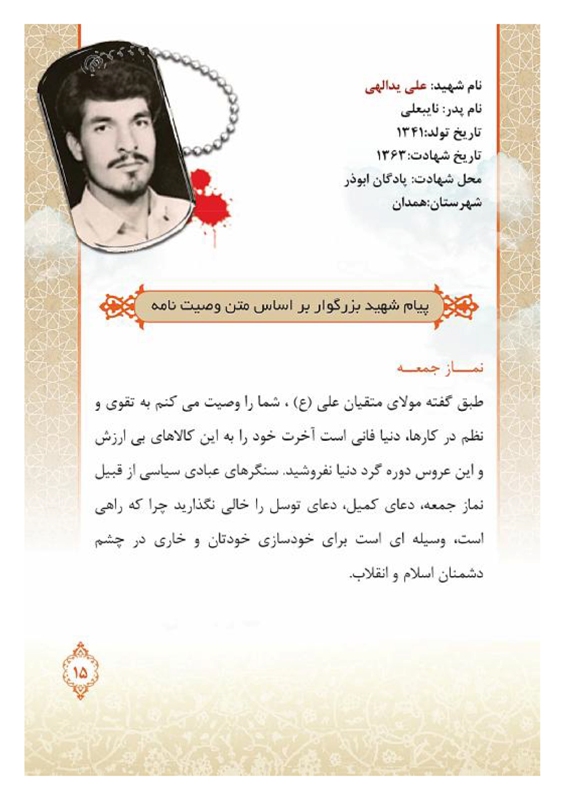 نام شهید: علی یدالهی
نام پدر: نایبعلی
تاریخ تولد:۱۳۴۱
تاریخ شهادت:۱۳۶۳
محل شهادت: پادگان ابوذر
شهرستان:همدان
پیام شهید بزرگوار بر اساس متن وصیت نامه
نمـــاز جمعـــه
طبق گفته مولای متقیان علی (ع) ، شما را وصیت می کنم به تقوی و
نظم در کارها، دنیا فانی است آخرت خود را به این کالاهای بی ارزش
و این عروس دوره گرد دنیا نفروشید. سنگرهای عبادی سیاسی از قبیل
نماز جمعه، دعای کمیل، دعای توسل را خالی نگذارید چرا که راهی
است، وسیله ای است برای خودسازی خودتان و خاری در چشم
دشمنان اسلام و انقلاب.
۱۵